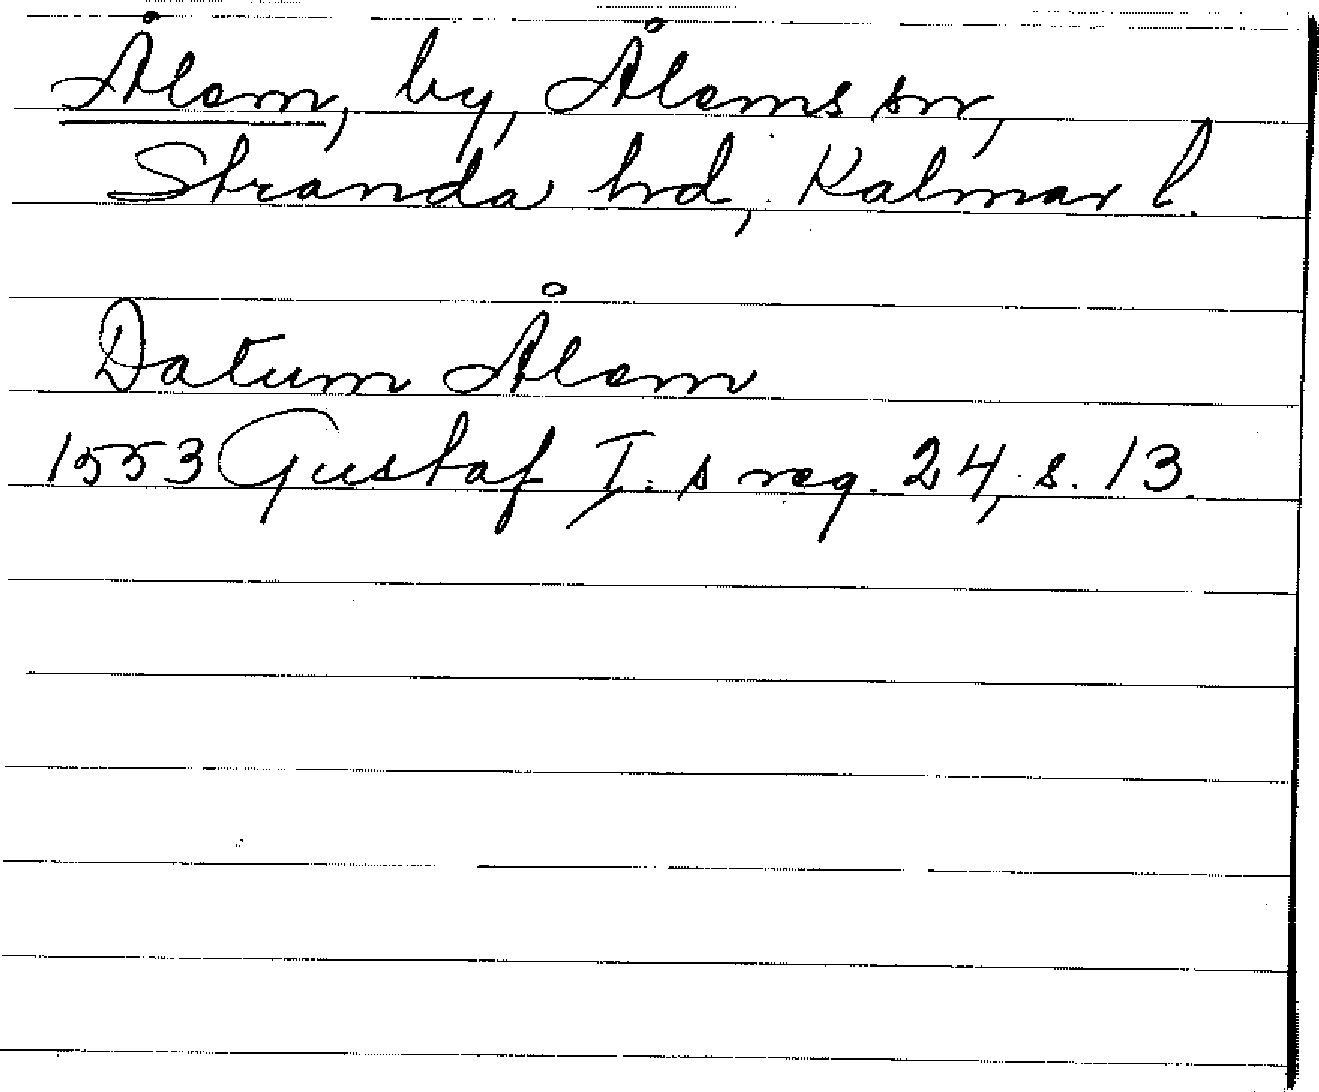 Ålem, by, Ålems sn,
Stranda hd, Kalmar l.
Datum Ålem
1553 Gustaf I:s reg. 24, s. 13.